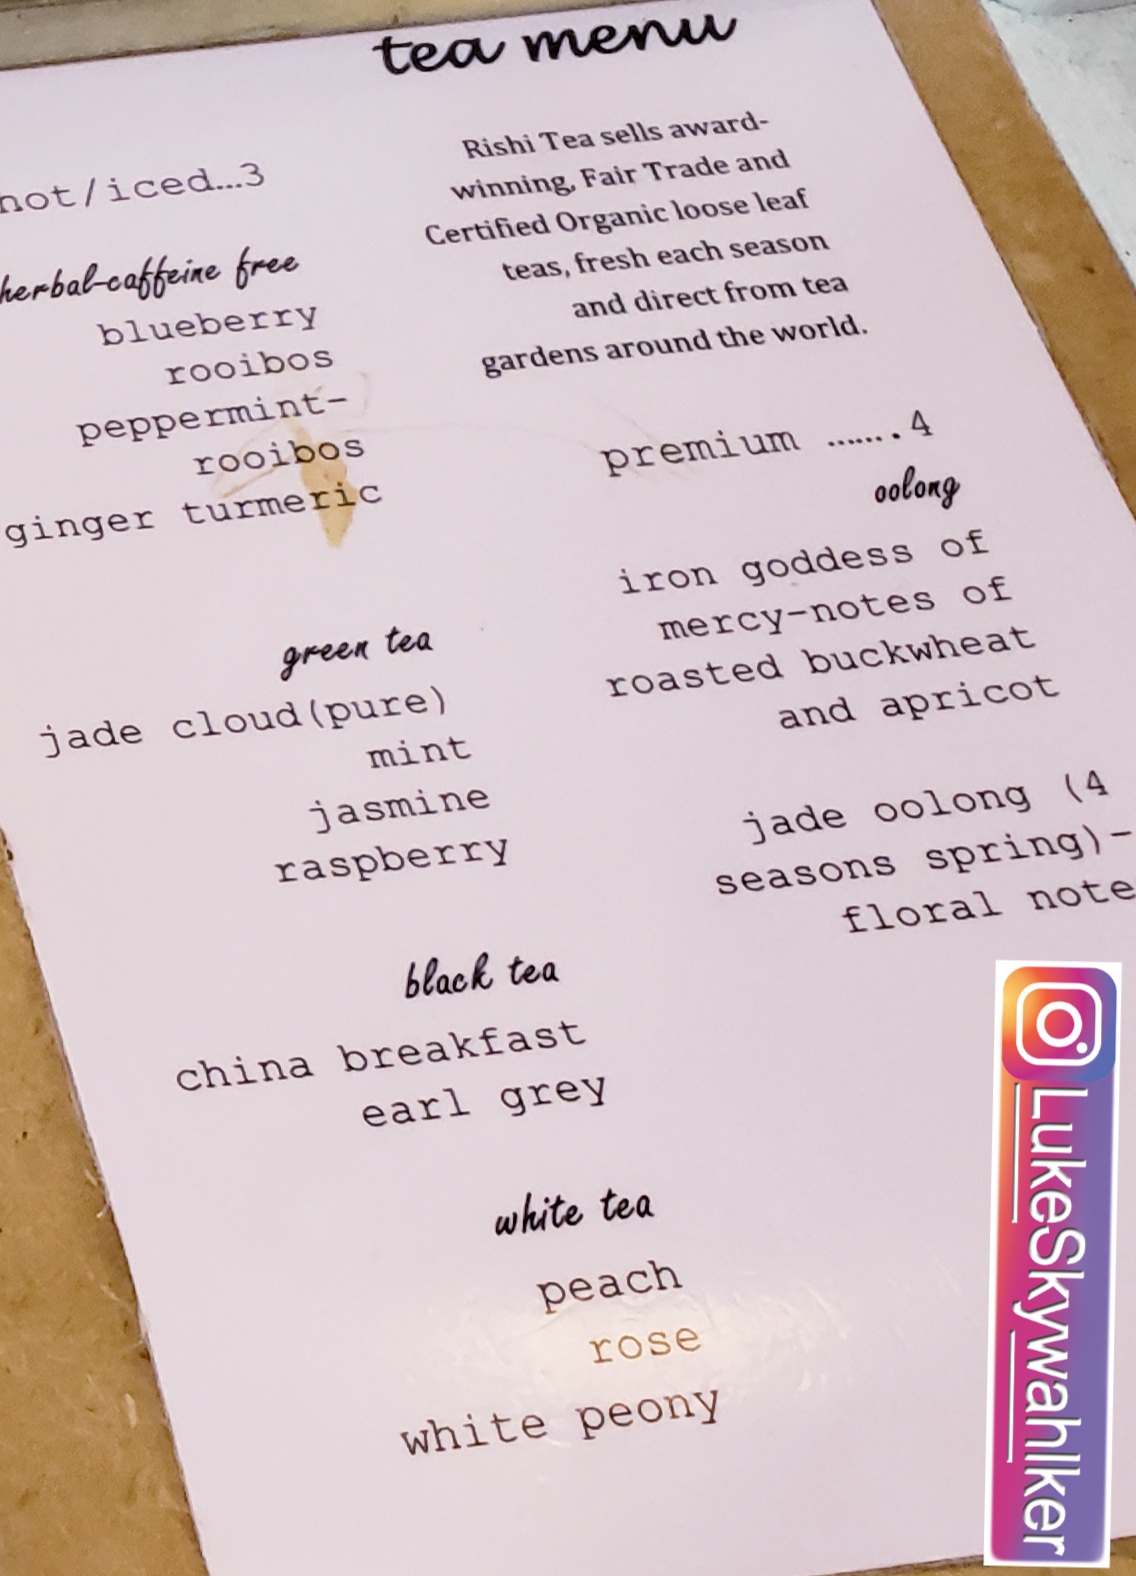 tea menu
hot/iced...3
herbal-caffeine free
blueberry
rooibos
peppermint-
rooibos
ginger turmeric
green tea
jade cloud(pure)
mint
jasmine
raspberry
black tea
china breakfast
earl grey
white tea
peach
rose
white peony
Rishi Tea sells award-
winning, Fair Trade and
Certified Organic loose leaf
teas, fresh each season
and direct from tea
gardens around the world.
premium ........4
oolong
iron goddess of
mercy-notes of
roasted buckwheat
and apricot
jade oolong (4
seasons spring)-
floral note
LukeSkywahlker